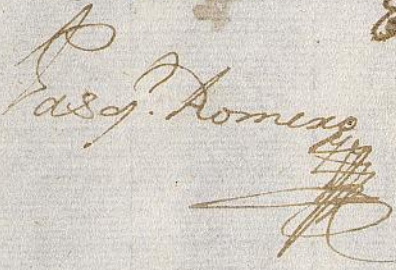 Pasq.l Romero